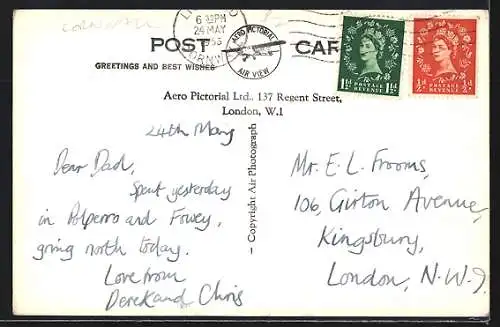 CORNWALL
6 30PM
24 MAY
CORNWALL
POST CARD
AERO PICTORIAL
AIR VIEW
GREETINGS AND BEST WISHES
1½d POSTAGE REVENUE 1½d
½d POSTAGE REVENUE ½d
Aero Pictorial Ltd., 137 Regent Street,
London, W.1
24th May
Dear Dad,
Spent yesterday
in Polperro and Fowey,
going north today.
Love from
Derek and Chris
— Copyright Air Photograph
Mr. E. L. Frooms,
106, Girton Avenue,
Kingsbury,
London, N.W.9.